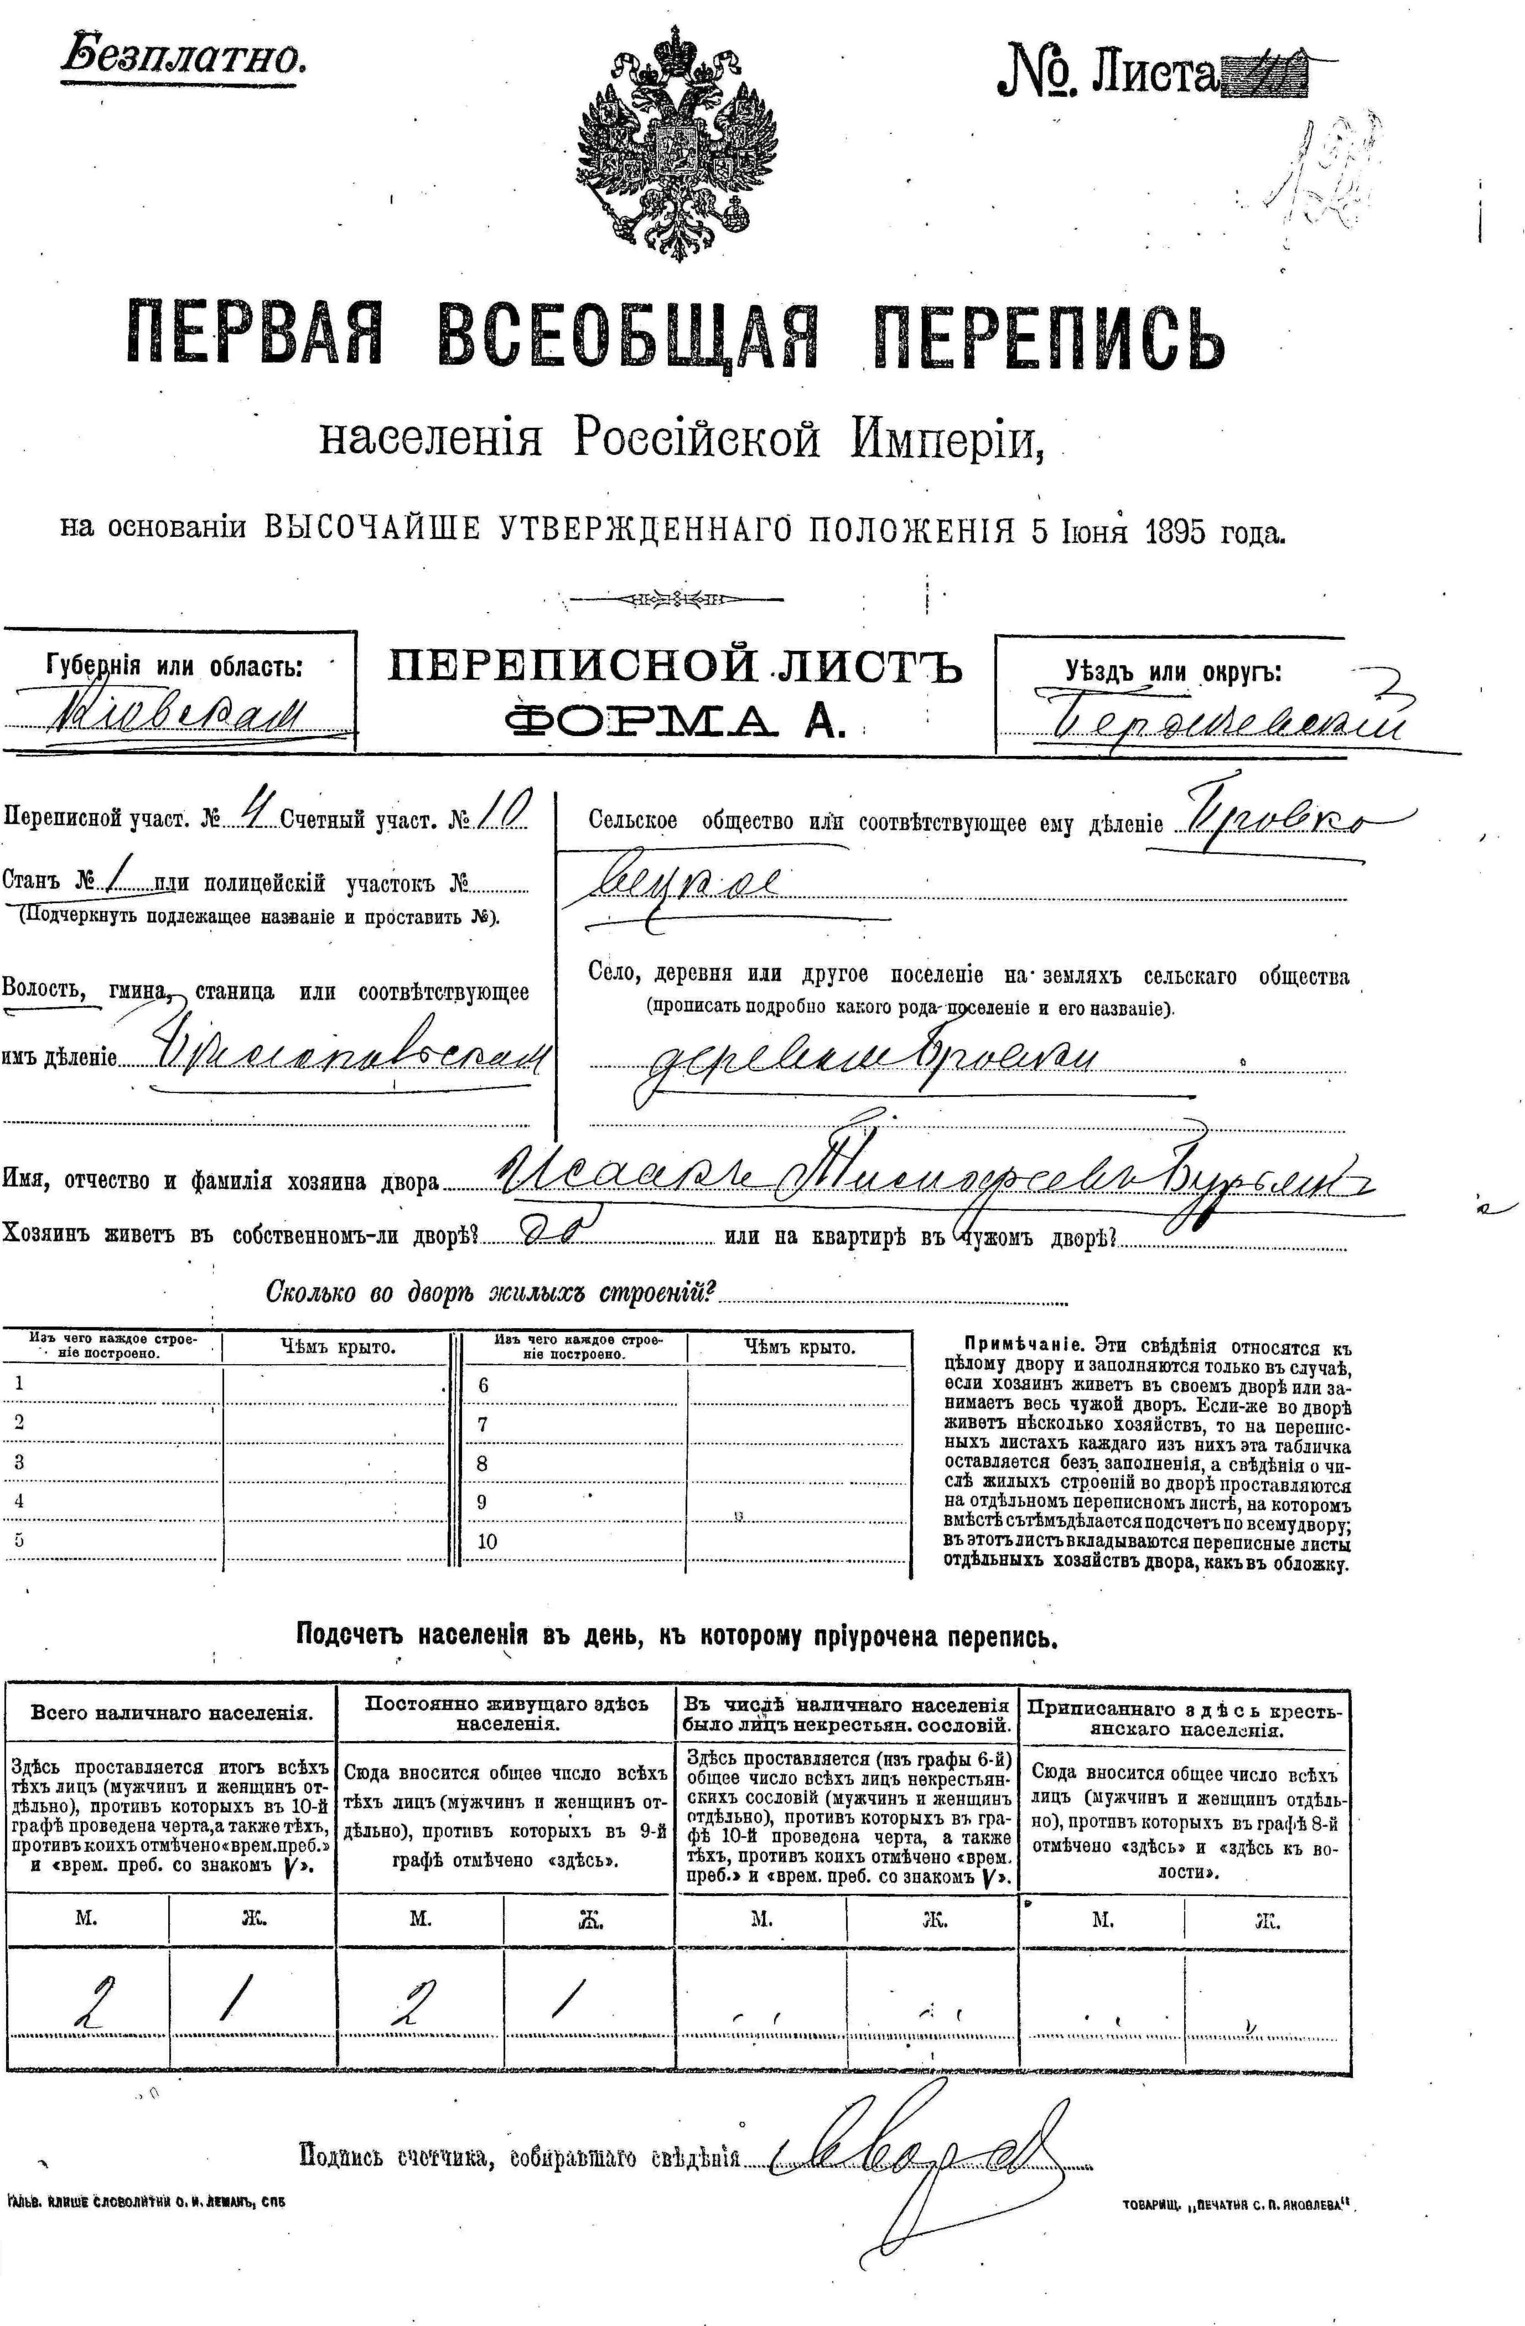 Безплатно.
№. Листа
ПЕРВАЯ ВСЕОБЩАЯ ПЕРЕПИСЬ
населенія Россійской Имперіи,
на основаніи ВЫСОЧАЙШЕ УТВЕРЖДЕННАГО ПОЛОЖЕНІЯ 5 Іюня 1895 года.
Губернія или область:
Кіовская
ПЕРЕПИСНОЙ ЛИСТЪ
ФОРМА А.
Уѣздъ или округъ:
Переписной участ. № 4 Счетный участ. № 10
Станъ № 1 или полицейскій участокъ №
(Подчеркнуть подлежащее названіе и проставить №).
Волость, гмина, станица или соотвѣтствующее
имъ дѣленіе
Сельское общество или соотвѣтствующее ему дѣленіе Бровко
вецкое
Село, деревня или другое поселеніе на земляхъ сельскаго общества
(прописать подробно какого рода поселеніе и его названіе).
деревня Бровки
Имя, отчество и фамилія хозяина двора Исаакъ Тимофеевъ Бурьянъ
Хозяинъ живетъ въ собственномъ-ли дворѣ? да или на квартирѣ въ чужомъ дворѣ?
Сколько во дворѣ жилыхъ строеній?
Изъ чего каждое строе-
ніе построено.
Чѣмъ крыто.
Изъ чего каждое строе-
ніе построено.
Чѣмъ крыто.
1 6
2 7
3 8
4 9
5 10
Примѣчаніе. Эти свѣдѣнія относятся къ
цѣлому двору и заполняются только въ случаѣ,
если хозяинъ живетъ въ своемъ дворѣ или за-
нимаетъ весь чужой дворъ. Если-же во дворѣ
живетъ нѣсколько хозяйствъ, то на перепис-
ныхъ листахъ каждаго изъ нихъ эта табличка
оставляется безъ заполненія, а свѣдѣнія о чи-
слѣ жилыхъ строеній во дворѣ проставляются
на отдѣльномъ переписномъ листѣ, на которомъ
вмѣстѣ съ тѣмъ дѣлается подсчетъ по всему двору;
въ этотъ листъ вкладываются переписные листы
отдѣльныхъ хозяйствъ двора, какъ въ обложку.
Подсчетъ населенія въ день, къ которому пріурочена перепись.
Всего наличнаго населенія.
Здѣсь проставляется итогъ всѣхъ
тѣхъ лицъ (мужчинъ и женщинъ от-
дѣльно), противъ которыхъ въ 10-й
графѣ проведена черта, а также тѣхъ,
противъ коихъ отмѣчено «врем. преб.»
и «врем. преб. со знакомъ V».
Постоянно живущаго здѣсь
населенія.
Сюда вносится общее число всѣхъ
тѣхъ лицъ (мужчинъ и женщинъ от-
дѣльно), противъ которыхъ въ 9-й
графѣ отмѣчено «здѣсь».
Въ числѣ наличнаго населенія
было лицъ некрестьян. сословій.
Здѣсь проставляется (изъ графы 6-й)
общее число всѣхъ лицъ некрестьян-
скихъ сословій (мужчинъ и женщинъ
отдѣльно), противъ которыхъ въ гра-
фѣ 10-й проведена черта, а также
тѣхъ, противъ коихъ отмѣчено «врем.
преб.» и «врем. преб. со знакомъ V».
Приписаннаго здѣсь кресть-
янскаго населенія.
Сюда вносится общее число всѣхъ
лицъ (мужчинъ и женщинъ отдѣль-
но), противъ которыхъ въ графѣ 8-й
отмѣчено «здѣсь» и «здѣсь къ во-
лости».
М. Ж. М. Ж. М. Ж. М. Ж.
2 1 2 1
Подпись счетчика, собиравшаго свѣдѣнія
ГАЛЬВ. КЛИШЕ СЛОВОЛИТНИ О. И. ЛЕМАНЪ, СПБ
ТОВАРИЩ. „ПЕЧАТНЯ С. П. ЯКОВЛЕВА“